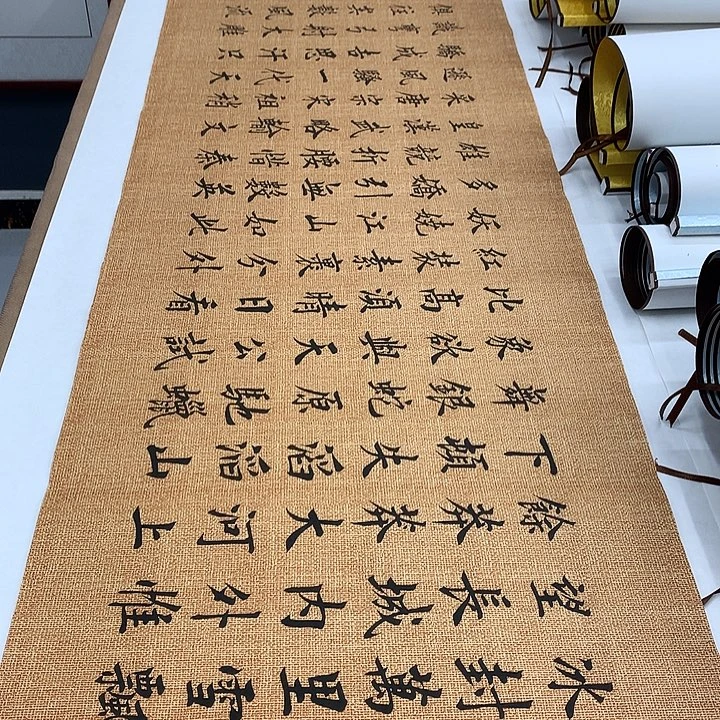 冰封萬里雪飄
望長城內外惟
餘莽莽大河上
下頓失滔滔山
舞銀蛇原馳蠟
象欲與天公試
比高須晴日看
紅裝素裹分外
妖嬈江山如此
多嬌引無數英
雄競折腰惜秦
皇漢武略輸文
采唐宗宋祖稍
遜風騷一代天
驕成吉思汗只
識彎弓射大雕
俱往矣數風流